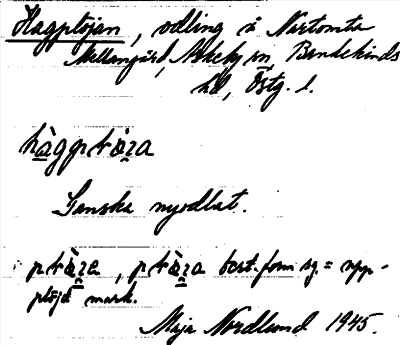 Hagplöjan, odling å Närtomta
Mellangård, Askeby sn, Bankekinds
hd, Östg. l.
hàgplö̀za
Ganska nyodlat.
plö̀ze, plö̀za best. form sg. = upp-
plöjd mark.
Maja Nordlund 1945.